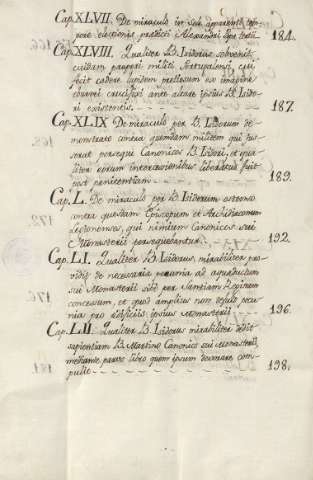 Cap. XLVII. De miraculo in sole apparenti tem-
pore electionis predicti Alexandri Pape tertii 184.
Cap. XLVIII. Qualiter B. Isidorus subvenit
cuidam pauperi militi, qui
fecit cadere lapidem pretiosum ex imagine
Crucifixi ante altare ipsius B. Isido-
ri existentis. 187.
Cap. XLIX. De miraculo per B. Isidorum de-
monstrato contra quendam militem qui vo-
lverat persequi Canonicos B. Isidori, et qua-
liter eorum intercessionibus liberatus fuit
post penitentiam 189.
Cap. L. De miraculo per B. Isidorum ostenso
contra quendam Episcopum et Archidiaconum
Legionenses, qui nimium Canonicos sui
Monasterii persequebantur. 192.
Cap. LI. Qualiter B. Isidorus mirabiliter pro-
vidit de necesaria pecunia ad aqueductum
sui Monasterii sibi per Sanctiam Reginam
concesum, et quod amplius non
pecu-
nia pro edificiis ipsius Monasterii 196.
Cap. LII. Qualiter B. Isidorus mirabiliter dedit
sapientiam B. Martino Canonico sui Monasterii,
mediante parvo libro quem ipsum devorare com-
pulit 198.